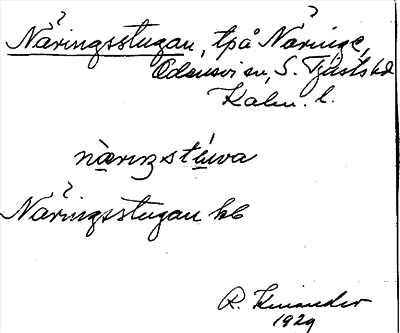 Näringsstugan, tpå Näringe,
Odensvi sn, S. Tjusts hd
Kalm. l.
nàrɪŋstúwa
Näringsstugan hb
R. Kinander
1929